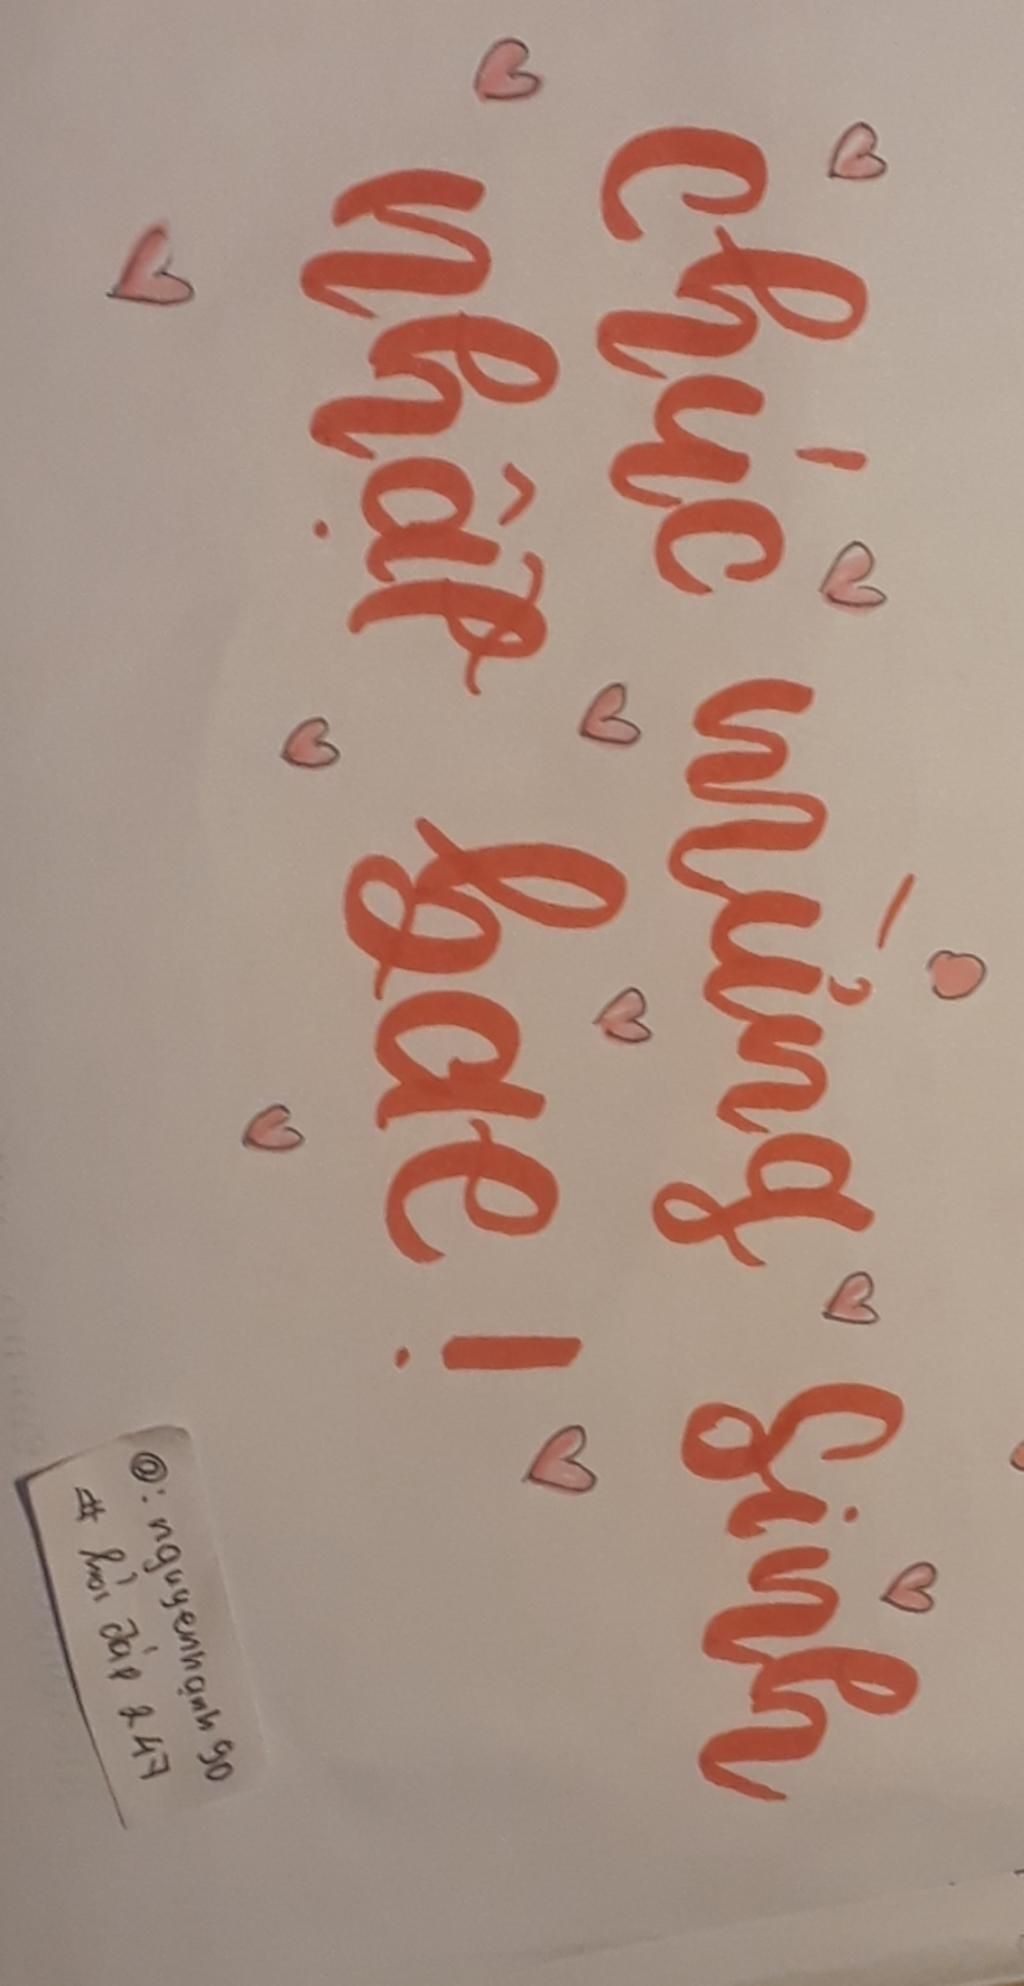 chúc mừng sinh
nhật bae!
@: nguyenhạnh90
# hỏi đáp 247